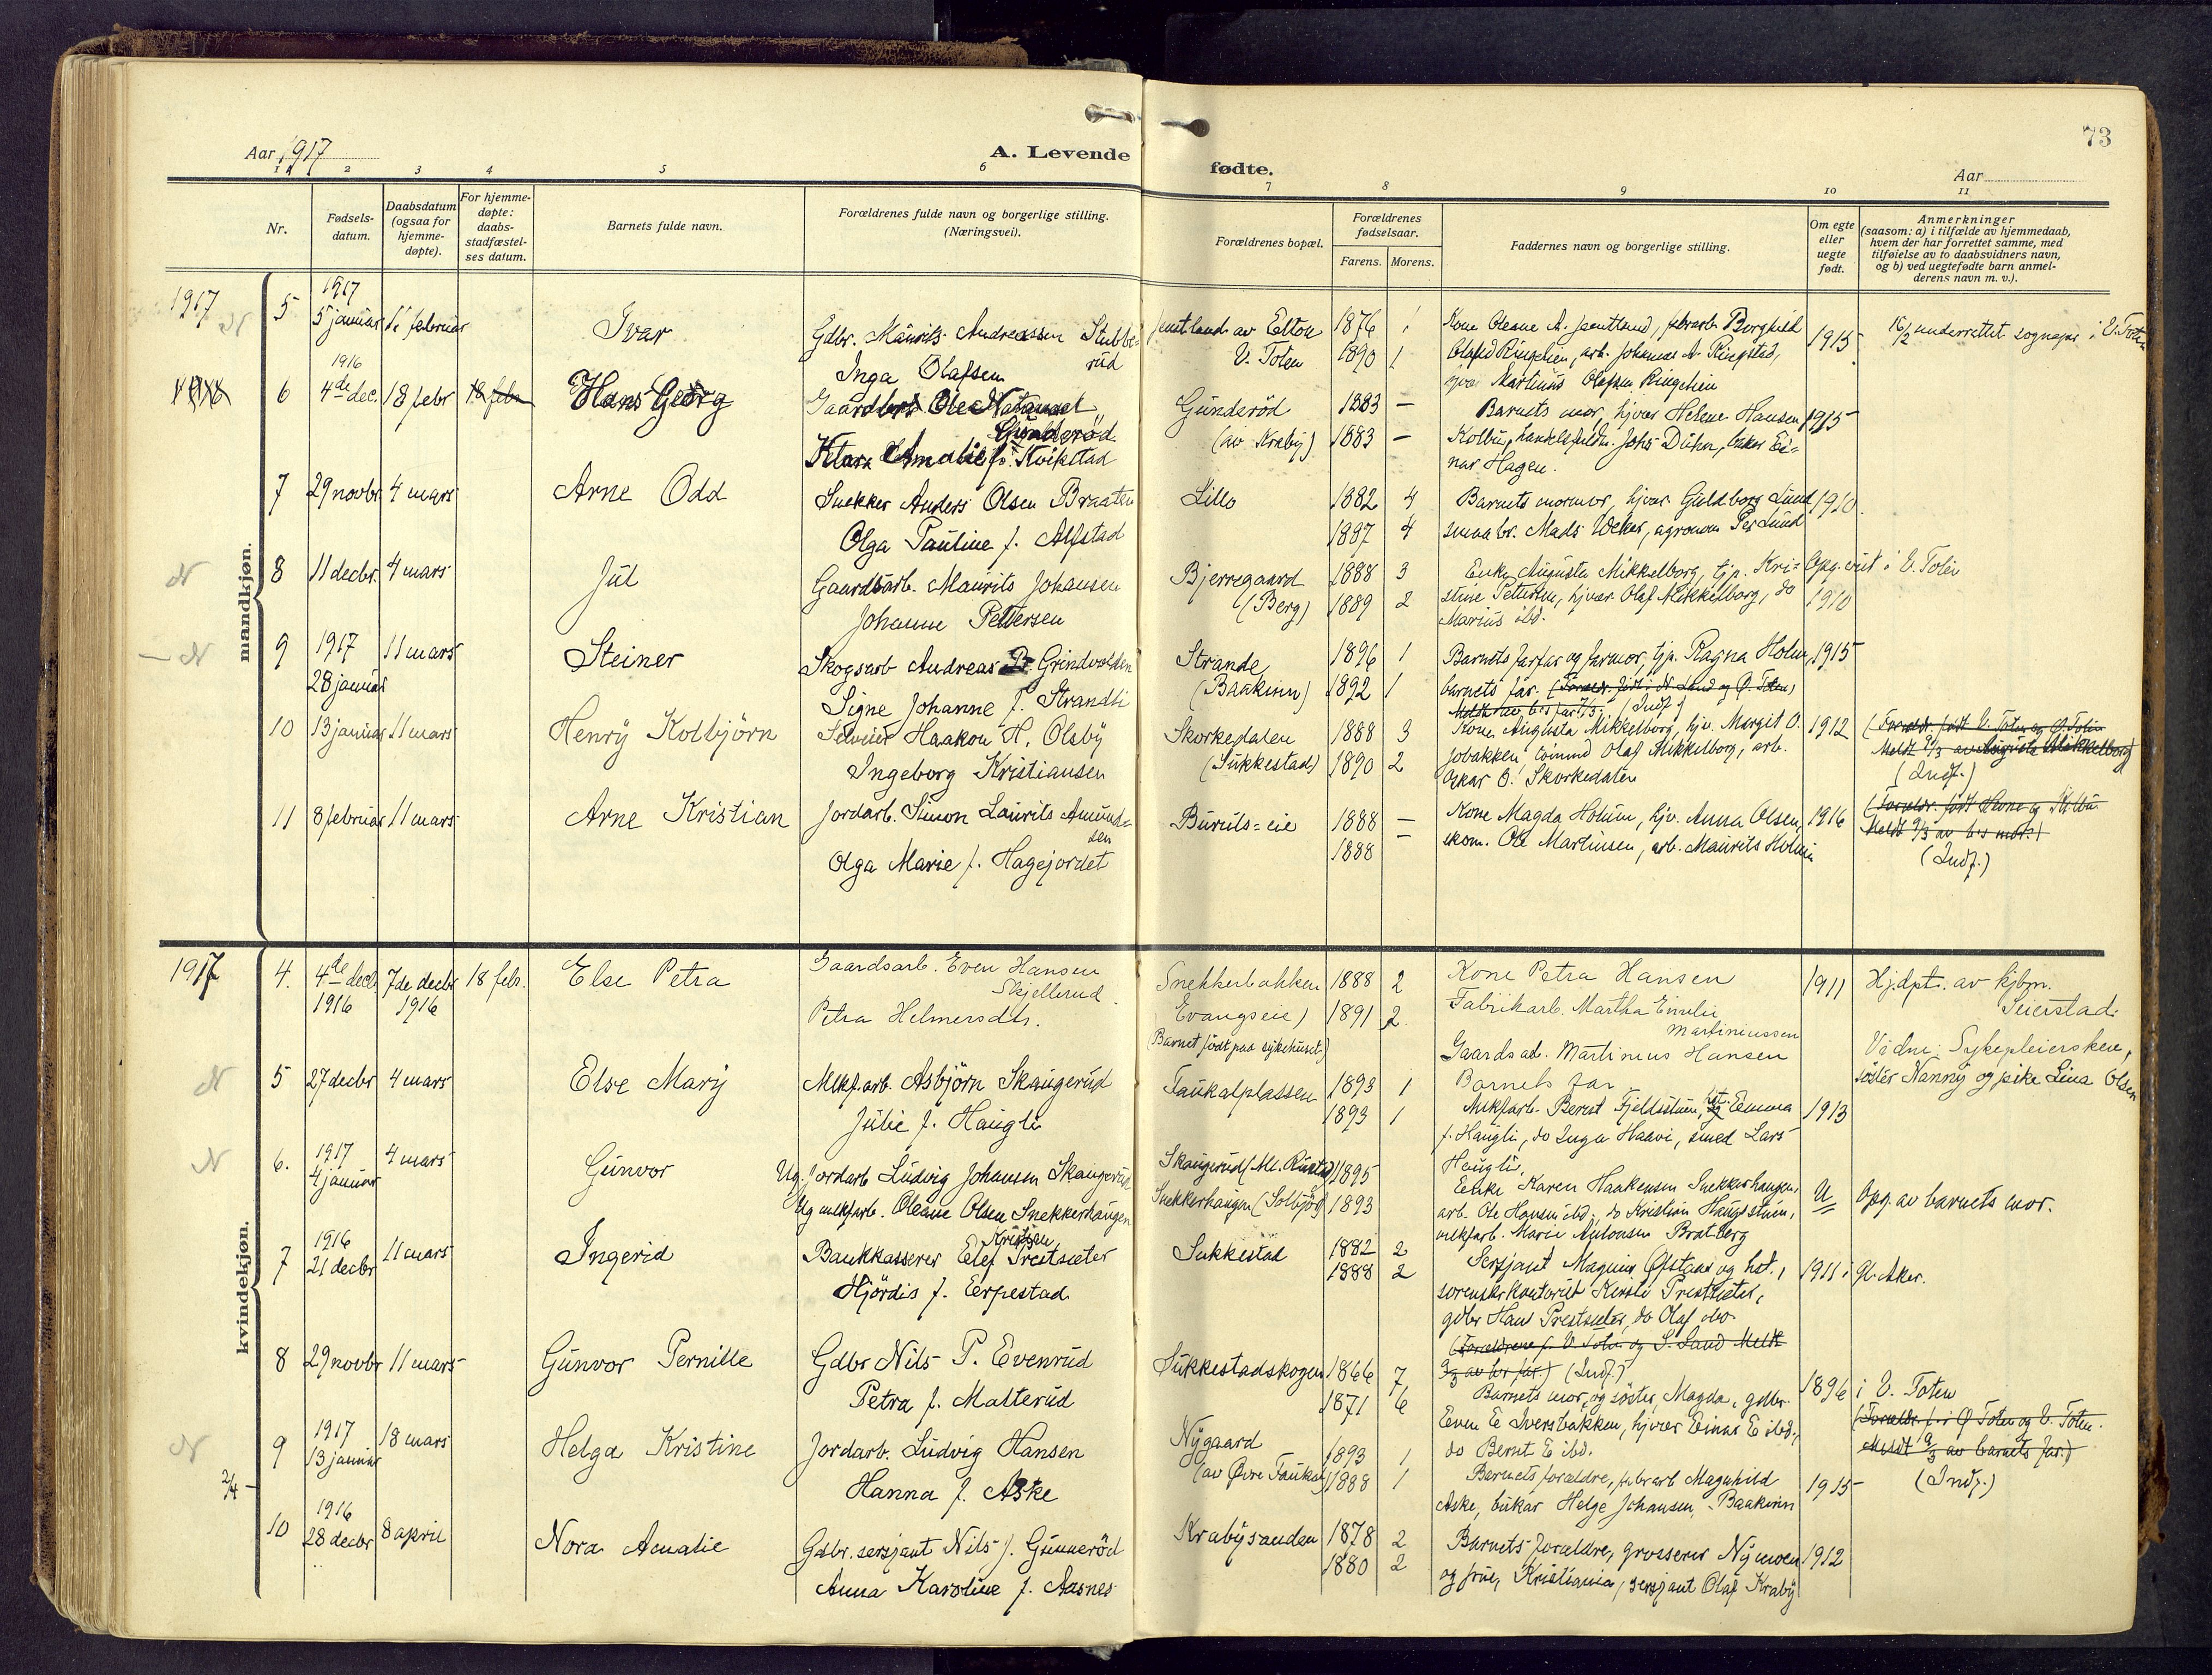 73
Aar 1917
A. Levende
fødte.
Aar
1 2 3 4 5 6 7 8 9 10 11
Nr.
Fødsels-
datum.
Daabsdatum
(ogsaa for
hjemme-
døpte).
For hjemme-
døpte:
daabs-
stadfæstel-
ses datum.
Barnets fulde navn.
Forældrenes fulde navn og borgerlige stilling.
(Næringsvei).
Forældrenes bopæl.
Forældrenes
fødselsaar.
Farens. Morens.
Faddernes navn og borgerlige stilling.
Om egte
eller
uegte
født.
Anmerkninger
(saasom: a) i tilfælde av hjemmedaab,
hvem der har forrettet samme, med
tilføielse av to daabsvidners navn,
og b) ved uegtefødte barn anmel-
derens navn m. v.).
mandkjøn.
1917
N 5
1917
5 januar
februar
Ivar
Gdbr. Maurits Andreassen Stubbe-
rud
Inga Olafsen
av Elton
V. Toten
1876 1
1890 1
Kone Oleane A. Borghild
Ringelien, arb. Johannes A. Ringstad,
Martinus Olafsen Ringelien
1915
16/2 underrettet sognepr. i V. Toten
6
1916
4de dec.
18 febr
18 febr
Hans Georg
Gaardbr. Ole Natanael
Gunderöd
Klara Amalie f. Kvikstad
Gunderöd
(av Kraby)
1883 —
1883 —
Barnets mor, hjvær Helene Hansen
Kolbu, Johs Dühn, Ei-
nar Hagen.
1915
7
29 novbr
4 mars
Arne Odd
Snekker Anders Olsen Braaten
Olga Pauline f. Alfstad
Lillo
1882 4
1887 4
Barnets mormor, hjvær Guldborg Lund
smaabr. Mads agronom Per Lund
1910
N 8
11 decbr.
4 mars
Jul
Gaardsarb. Maurits Johansen
Johanne Pettersen
Bjerregaard
(Berg)
1888 3
1889 2
Enke Augusta Mikkelborg, tjp. Kri-
stine Petersen, hjvær Olaf Mikkelborg, do
Marius ibd.
Opg. viet i V. Toten
1910
N 9
1917
28 januar
11 mars
Steiner
Skogsarb Andreas Grindvolden
Signe Johanne f. Strandli
Strande
(Baakinn)
1896 1
1892 1
Barnets farfar og farmor, tjp. Ragna Holm,
barnets far. (Foreldr. födt i N. Land og Ø. Toten)
(Indf.)
1915
10
13 januar
11 mars
Henry Kolbjörn
Selveier Haakon H. Olsby
Ingeborg Kristiansen
Skorkedalen
(Sukkestad)
1888 3
1890 2
Kone Augusta Mikkelborg, hjv. Margit O.
Olaf Mikkelborg, arb.
Oskar O. Skorkedalen
1912
(Foreldr. födt V. Toten og Ø. Toten
Meldt 9/3 av Augusta Mikkelborg)
(Indf.)
11
8 februar
11 mars
Arne Kristian
Jordarb. Simon Laurits Amund-
sen
Olga Marie f. Hagejordet
Buruls-eie
1888 —
1888 —
Kone Magda Holum, hjv. Anna Olsen,
skom. Ole Martinsen, arb. Maurits Holum
1916
Meldt 9/3 av b's mor.)
(Indf.)
kvindekjøn.
1917
4.
4de decb
1916
7de decbr
1916
18 febr.
Else Petra
Gaardsarb. Even Hansen
Skjellerud
Petra Helmersdtr.
Snekkerbakken
Evangseie)
(Barnet födt paa sykehuset.)
1888 2
1891 2
Kone Petra Hansen
Fabrikarb. Martha Emilie
Martiniussen
Gaardsarb. Martinius Hansen
Barnets far
1911
Hj.dpt. av kjbm.
Seierstad.
Vidne: Sykepleiersken,
söster Nanny og pike Lina Olsen
N 5
27 decbr
4 mars
Else Mary
Mlkf.arb. Asbjörn Skaugerud
Julie f. Haugli
Taukalplassen
1893 1
1893 1
Mlkfarb. Bernt Fjeldstuen, Emma
f. Haugli, do Inga Haavi, smed Lars
Haugli.
1913
N 6.
1917
4 januar
4 mars
Gunvor
Ug. Jordarb Ludvig Johansen Skaugerud
Ug mlkfarb. Oleane Olsen Snekkerhaugen
Skaugerud
Snekkerhaugen (Solbjör)
1895
1893
Enke Karen Haakensen Snekkerhaugen,
arb. Ole Hansen ibd., do Kristian Haugstuen,
mlkfarb. Marie Antonsen Bratberg
U
Opg. av barnets mor.
7
1916
21 decbr
11 mars
Ingerid
Kristian
Bankkasserer Elef Prestsæter
Hjördis f. Erpestad
Sukkestad
1882 2
1888 2
Sersjant Magnus Ofstaas og hst.,
Kirsti Prestsæter,
gdbr Hans Prestsæter, do Olaf do
(Foreldrene f. V. Toten og S. Land Meldt
(Indf.)
1911 i Gl. Aker.
8
29 novbr
11 mars
Gunvor Pernille
Gdbr Nils P. Evenrud
Petra f. Matterud
Sukkestadskogen
1866 7
1871 6
Barnets mor, og söster, Magda, gdbr.
Even E Iversbakken, hjvær Einar E ibd.,
do Bernt E ibd.
1896
i V. Toten
(Foreldr. f. i Ø Toten og V. Toten.
Meldt 9/3 av barnets far.)
(Indf.)
N 9
1917
13 januar
18 mars
Helga Kristine
Jordarb. Ludvig Hansen
Hanna f. Aske
Nygaard
(av Øvre Taukal)
1893 1
1888 1
Barnets forældre, fabrarb Magnhild
Aske, Helge Johansen, Baakinn
1915
2/4 -
10
1916
28 decbr
8 april
Nora Amalie
Gdbr. sersjant Nils J. Gunneröd
Anna Karoline f. Aasnes
Krabysanden
1878 2
1880 2
Barnets forældre, grosserer Nymoen
og frue, Kristiania, sersjant Olaf Kraby
1912